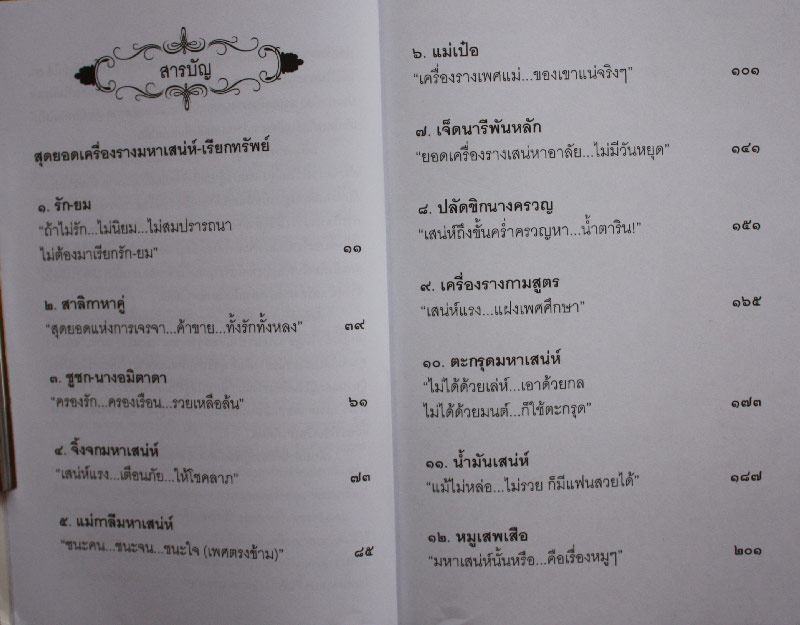 สารบัญ
สุดยอดเครื่องรางมหาเสน่ห์-เรียกทรัพย์
๑. รัก-ยม
“ถ้าไม่รัก...ไม่นิยม...ไม่สมปรารถนา
ไม่ต้องมาเรียกรัก-ยม” ๑๑
๒. สาลิกาหาคู่
“สุดยอดแห่งการเจรจา...ค้าขาย...ทั้งรักทั้งหลง” ๓๙
๓. ชูชก-นางอมิตาดา
“ครองรัก...ครองเรือน...รวยเหลือล้น” ๖๑
๔. จิ้งจกมหาเสน่ห์
“เสน่ห์แรง...เตือนภัย...ให้โชคลาภ” ๗๓
๕. แม่กาลีมหาเสน่ห์
“ชนะคน...ชนะจน...ชนะใจ (เพศตรงข้าม)” ๘๕
๖. แม่เป๋อ
“เครื่องรางเพศแม่...ของเขาแน่จริงๆ” ๑๐๑
๗. เจ็ดนารีพันหลัก
“ยอดเครื่องรางเสน่หาอาลัย...ไม่มีวันหยุด” ๑๔๑
๘. ปลัดขิกนางครวญ
“เสน่ห์ถึงขั้นคร่ำครวญหา...น้ำตาริน!” ๑๕๑
๙. เครื่องรางกามสูตร
“เสน่ห์แรง...แฝงเพศศึกษา” ๑๖๕
๑๐. ตะกรุดมหาเสน่ห์
“ไม่ได้ด้วยเล่ห์...เอาด้วยกล
ไม่ได้ด้วยมนต์...ก็ใช้ตะกรุด” ๑๗๓
๑๑. น้ำมันเสน่ห์
“แม้ไม่หล่อ...ไม่รวย ก็มีแฟนสวยได้” ๑๘๗
๑๒. หมูเสพเสือ
“มหาเสน่ห์นั้นหรือ...คือเรื่องหมูๆ” ๒๐๑